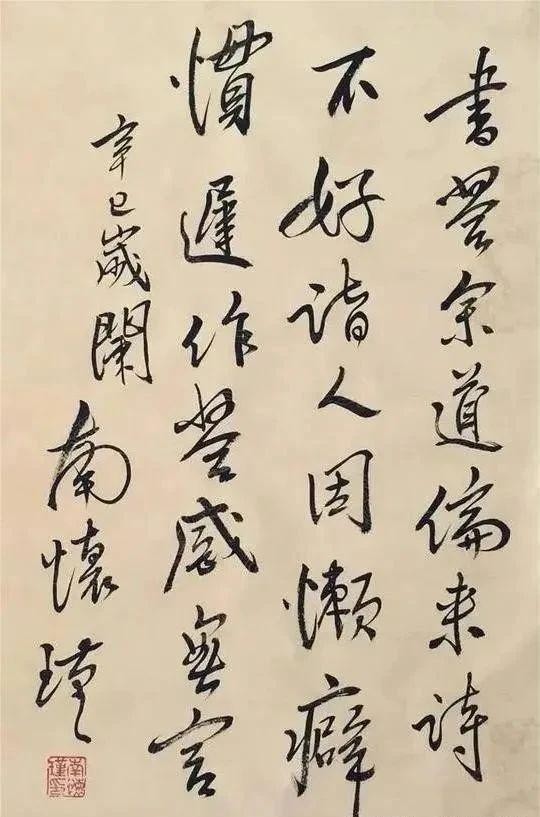 書答余道偏來詩
不好詣人因懶癖
慣遲作答感無言
辛巳歲闌 南懷瑾
南懷瑾印